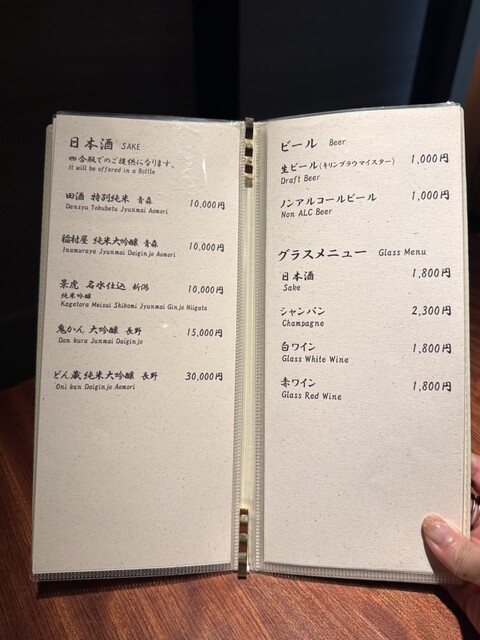 日本酒 SAKE
四合瓶でのご提供になります。
It will be offered in a Bottle
田酒 特別純米 青森 10,000円
Densyu Tokubetu Jyunmai Aomori
稲村屋 純米大吟醸 青森 10,000円
Inamuraya Jyunmai Daiginjo Aomori
景虎 名水仕込 新潟 10,000円
純米吟醸
Kagetora Meisui Shibomi Jyunmai Ginjo Niigata
鬼かん 大吟醸 長野 15,000円
Don kura Junmai Daiginjo
どん蔵 純米大吟醸 長野 30,000円
Oni kan Daiginjo Aomori
ビール Beer
生ビール(キリンブラウマイスター) 1,000円
Draft Beer
ノンアルコールビール 1,000円
Non ALC Beer
グラスメニュー Glass Menu
日本酒 1,800円
Sake
シャンパン 2,300円
Champagne
白ワイン 1,800円
Glass White Wine
赤ワイン 1,800円
Glass Red Wine